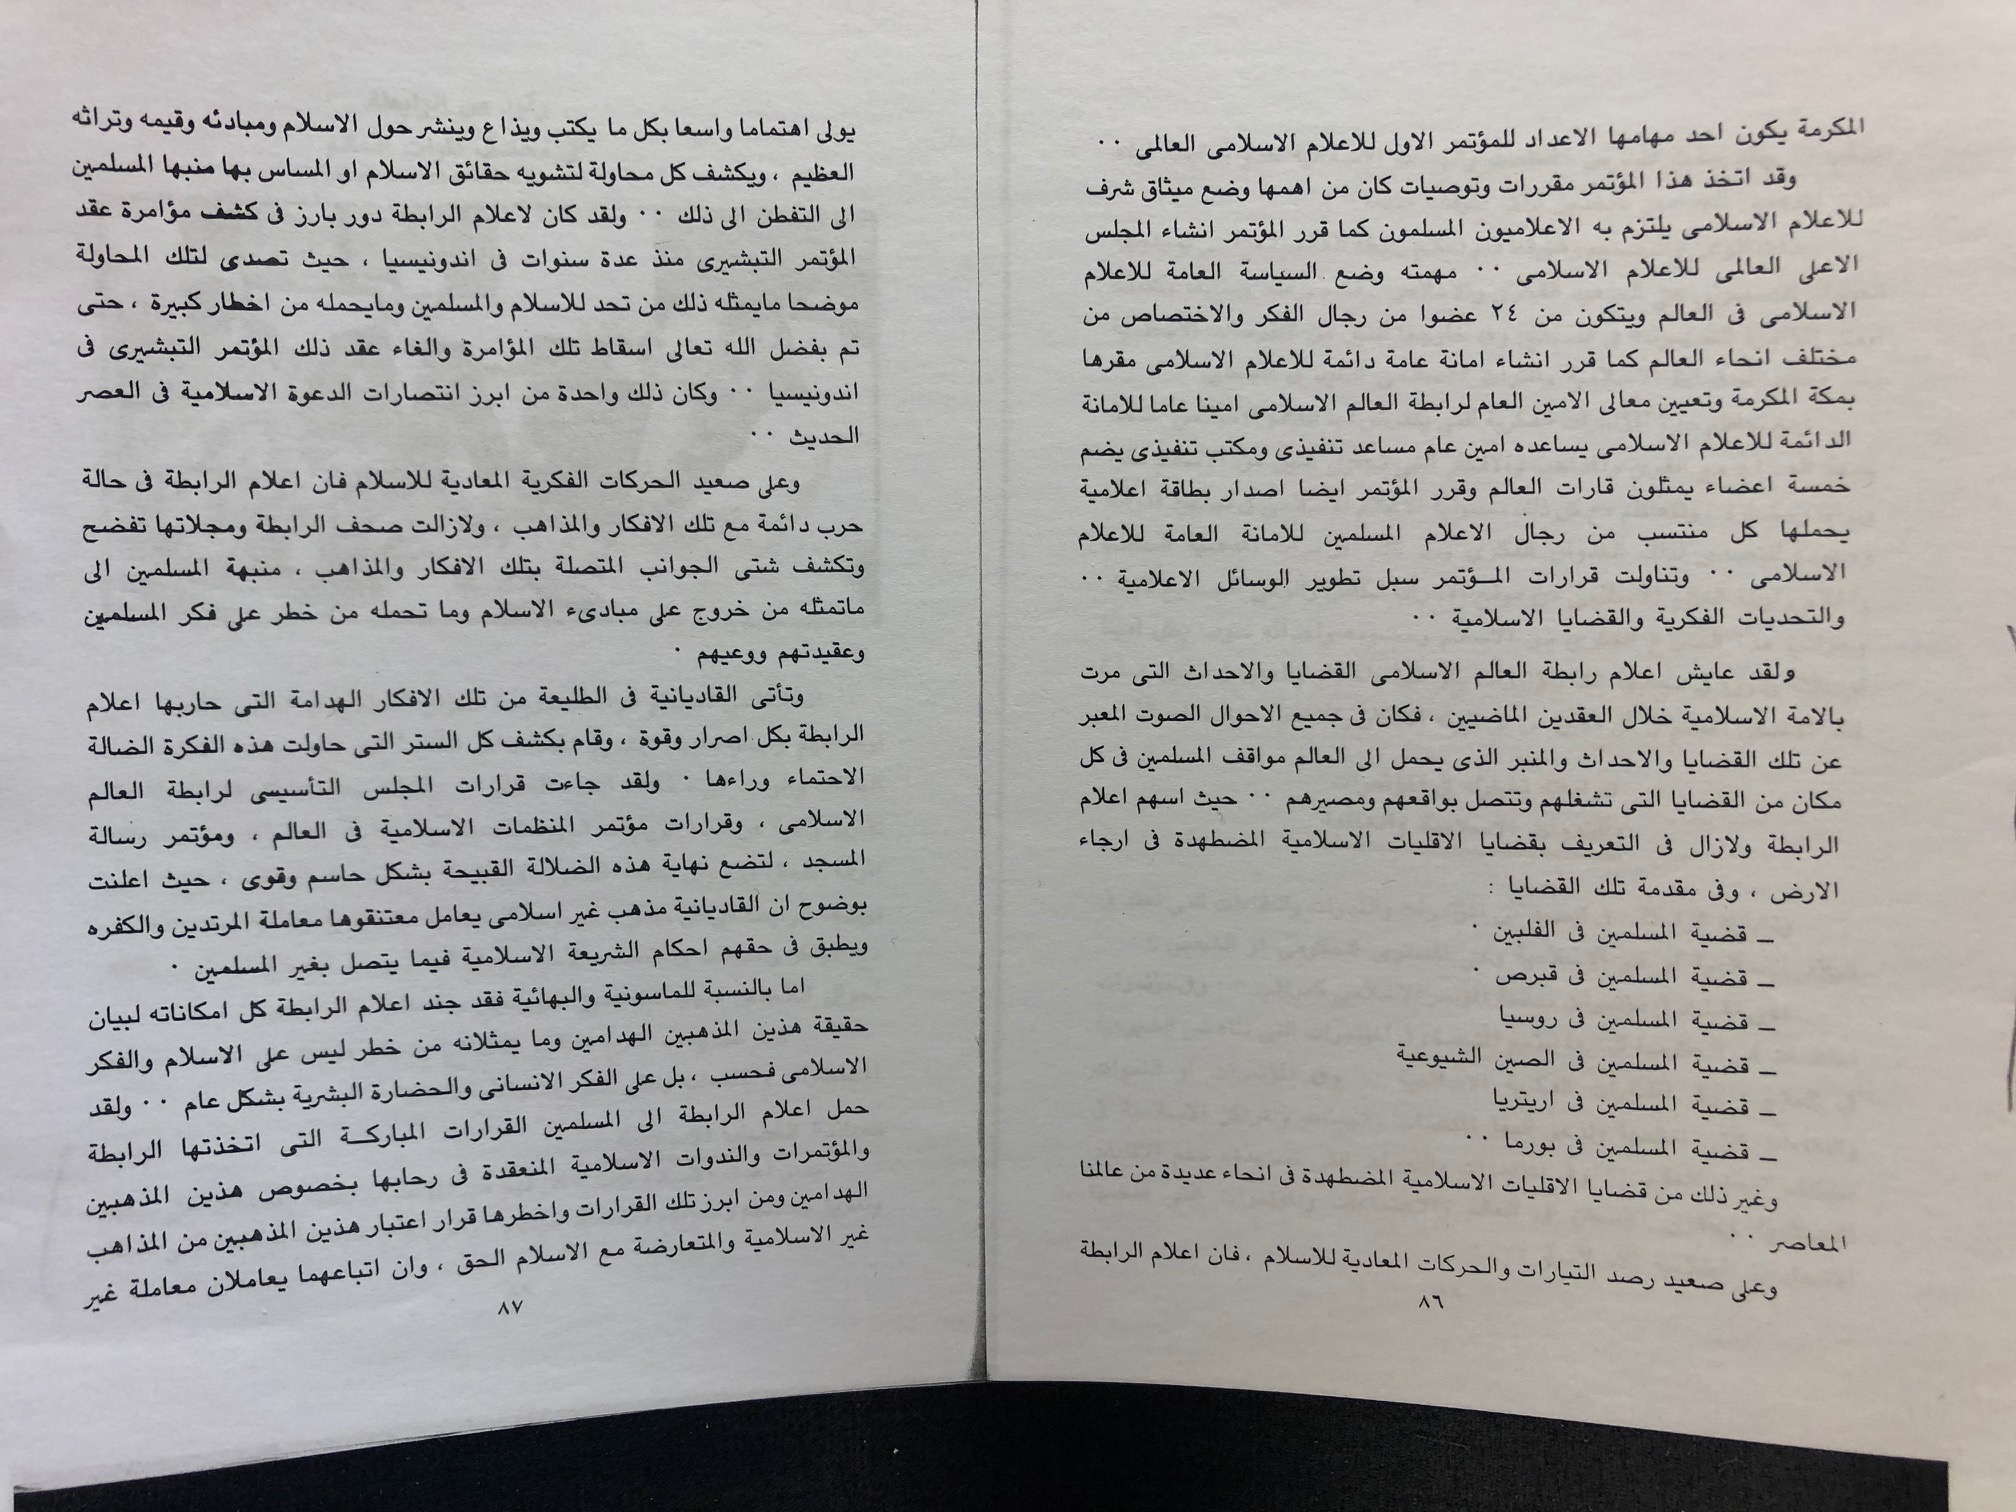 المكرمة يكون احد مهامها الاعداد للمؤتمر الاول للاعلام الاسلامى العالمى ٠٠
وقد اتخذ هذا المؤتمر مقررات وتوصيات كان من اهمها وضع ميثاق شرف
للاعلام الاسلامى يلتزم به الاعلاميون المسلمون كما قرر المؤتمر انشاء المجلس
الاعلى العالمى للاعلام الاسلامى ٠٠ مهمته وضع السياسة العامة للاعلام
الاسلامى فى العالم ويتكون من ٢٤ عضوا من رجال الفكر والاختصاص من
مختلف انحاء العالم كما قرر انشاء امانة عامة دائمة للاعلام الاسلامى مقرها
بمكة المكرمة وتعيين معالى الامين العام لرابطة العالم الاسلامى امينا عاما للامانة
الدائمة للاعلام الاسلامى يساعده امين عام مساعد تنفيذى ومكتب تنفيذى يضم
خمسة اعضاء يمثلون قارات العالم وقرر المؤتمر ايضا اصدار بطاقة اعلامية
يحملها كل منتسب من رجال الاعلام المسلمين للامانة العامة للاعلام
الاسلامى ٠٠ وتناولت قرارات المـؤتمر سبل تطوير الوسائل الاعلامية ٠٠
والتحديات الفكرية والقضايا الاسلامية ٠٠
ولقد عايش اعلام رابطة العالم الاسلامى القضايا والاحداث التى مرت
بالامة الاسلامية خلال العقدين الماضيين ، فكان فى جميع الاحوال الصوت المعبر
عن تلك القضايا والاحداث والمنبر الذى يحمل الى العالم مواقف المسلمين فى كل
مكان من القضايا التى تشغلهم وتتصل بواقعهم ومصيرهم ٠٠ حيث اسهم اعلام
الرابطة ولازال فى التعريف بقضايا الاقليات الاسلامية المضطهدة فى ارجاء
الارض ، وفى مقدمة تلك القضايا :
ـ قضية المسلمين فى الفلبين ٠
ـ قضية المسلمين فى قبرص ٠
ـ قضية المسلمين فى روسيا
ـ قضية المسلمين فى الصين الشيوعية
ـ قضية المسلمين فى اريتريا
ـ قضية المسلمين فى بورما ٠٠
وغير ذلك من قضايا الاقليات الاسلامية المضطهدة فى انحاء عديدة من عالمنا
المعاصر ٠٠
وعلى صعيد رصد التيارات والحركات المعادية للاسلام ، فان اعلام الرابطة
٨٦
يولى اهتماما واسعا بكل ما يكتب ويذاع وينشر حول الاسلام ومبادئه وقيمه وتراثه
العظيم ، ويكشف كل محاولة لتشويه حقائق الاسلام او المساس بها منبها المسلمين
الى التفطن الى ذلك ٠٠ ولقد كان لاعلام الرابطة دور بارز فى كشف مؤامرة عقد
المؤتمر التبشيرى منذ عدة سنوات فى اندونيسيا ، حيث تصدى لتلك المحاولة
موضحا مايمثله ذلك من تحد للاسلام والمسلمين ومايحمله من اخطار كبيرة ، حتى
تم بفضل الله تعالى اسقاط تلك المؤامرة والغاء عقد ذلك المؤتمر التبشيرى فى
اندونيسيا ٠٠ وكان ذلك واحدة من ابرز انتصارات الدعوة الاسلامية فى العصر
الحديث ٠٠
وعلى صعيد الحركات الفكرية المعادية للاسلام فان اعلام الرابطة فى حالة
حرب دائمة مع تلك الافكار والمذاهب ، ولازالت صحف الرابطة ومجلاتها تفضح
وتكشف شتى الجوانب المتصلة بتلك الافكار والمذاهب ، منبهة المسلمين الى
ماتمثله من خروج على مبادىء الاسلام وما تحمله من خطر على فكر المسلمين
وعقيدتهم ووعيهم ٠
وتأتى القاديانية فى الطليعة من تلك الافكار الهدامة التى حاربها اعلام
الرابطة بكل اصرار وقوة ، وقام بكشف كل الستر التى حاولت هذه الفكرة الضالة
الاحتماء وراءها ٠ ولقد جاءت قرارات المجلس التأسيسى لرابطة العالم
الاسلامى ، وقرارات مؤتمر المنظمات الاسلامية فى العالم ، ومؤتمر رسالة
المسجد ، لتضع نهاية هذه الضلالة القبيحة بشكل حاسم وقوى ، حيث اعلنت
بوضوح ان القاديانية مذهب غير اسلامى يعامل معتنقوها معاملة المرتدين والكفره
ويطبق فى حقهم احكام الشريعة الاسلامية فيما يتصل بغير المسلمين ٠
اما بالنسبة للماسونية والبهائية فقد جند اعلام الرابطة كل امكاناته لبيان
حقيقة هذين المذهبين الهدامين وما يمثلانه من خطر ليس على الاسلام والفكر
الاسلامى فحسب ، بل على الفكر الانسانى والحضارة البشرية بشكل عام ٠٠ ولقد
حمل اعلام الرابطة الى المسلمين القرارات المباركـة التى اتخذتها الرابطة
والمؤتمرات والندوات الاسلامية المنعقدة فى رحابها بخصوص هذين المذهبين
الهدامين ومن ابرز تلك القرارات واخطرها قرار اعتبار هذين المذهبين من المذاهب
غير الاسلامية والمتعارضة مع الاسلام الحق ، وان اتباعهما يعاملان معاملة غير
٨٧